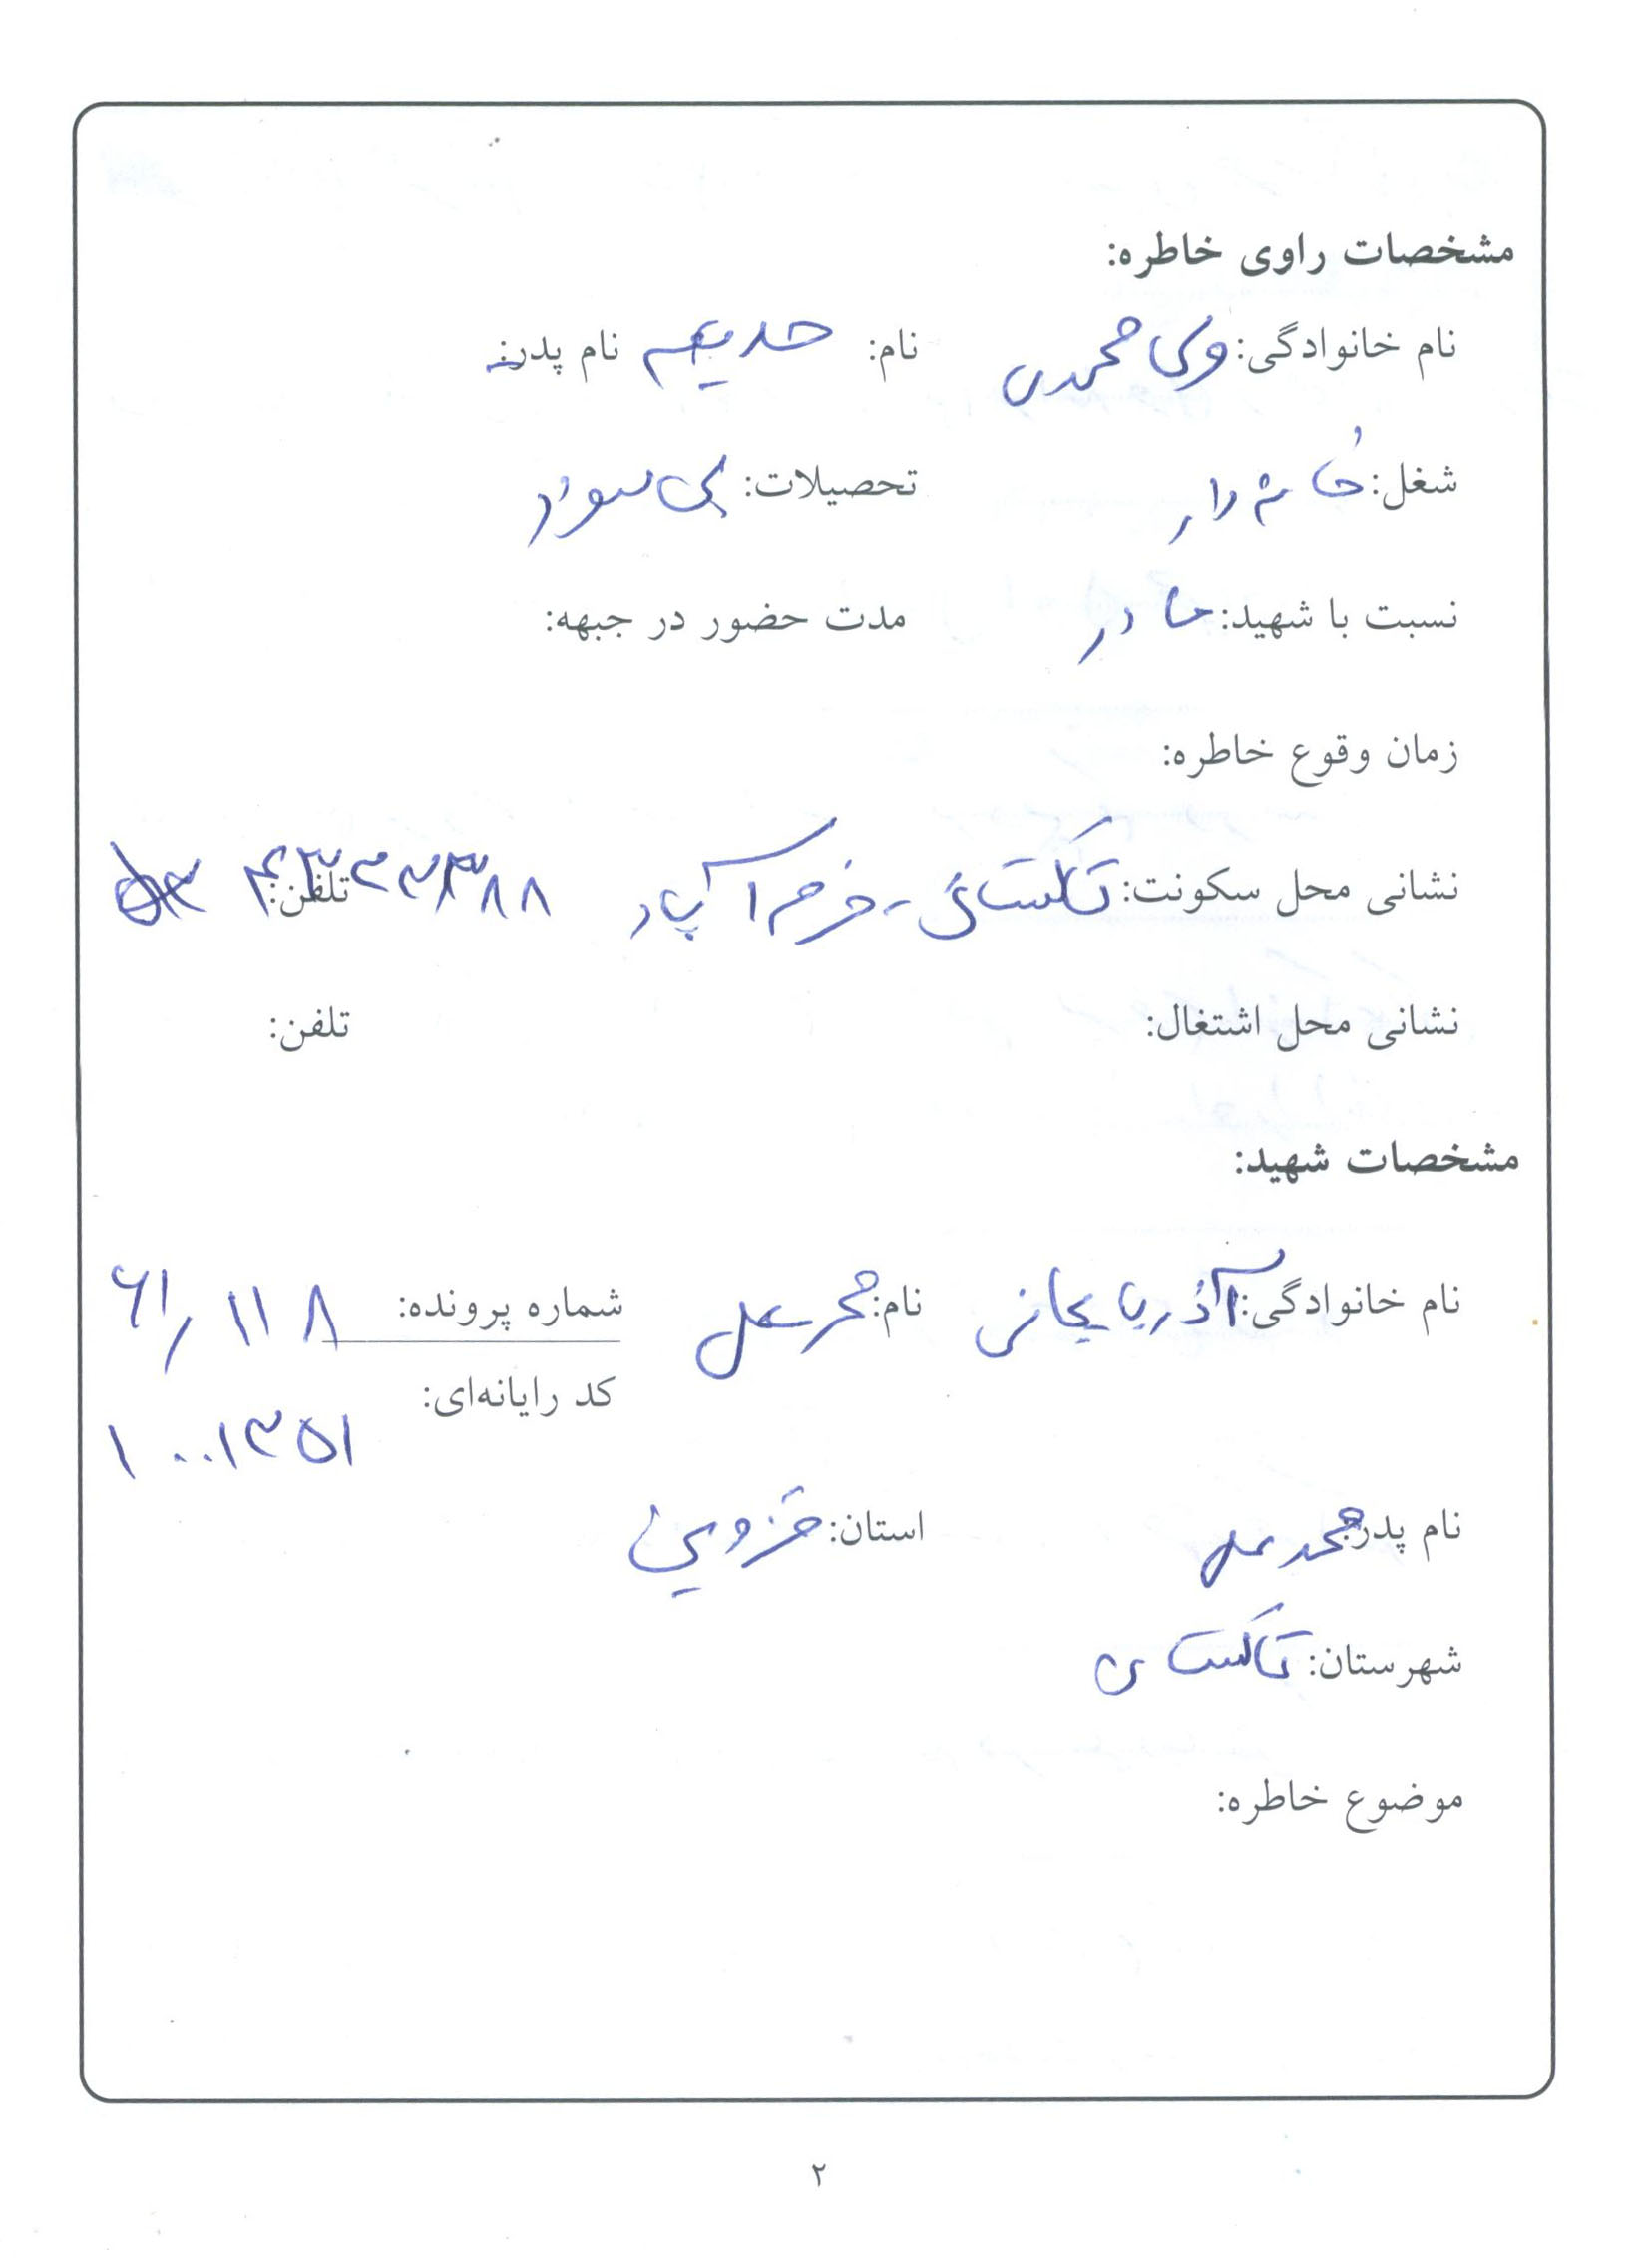 مشخصات راوی خاطره:
نام خانوادگی: ولی محمدی نام: خدیجه نام پدر:
شغل: خانه دار تحصیلات: بی سواد
نسبت با شهید: مادر مدت حضور در جبهه:
زمان وقوع خاطره:
نشانی محل سکونت: تاکستان - خرم آباد تلفن:
نشانی محل اشتغال: تلفن:
مشخصات شهید:
نام خانوادگی: آذربایجانی نام: محرمعلی شماره پرونده: ۶۱/۱۱۸
کد رایانه‌ای: ۱۰۰۱۳۵۱
نام پدر: محمدعلی استان: قزوین
شهرستان: تاکستان
موضوع خاطره:
۲